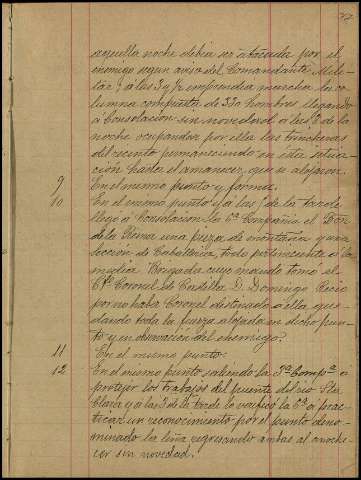 aquella noche debia ser atacada por el
enemigo segun aviso del Comandante Mili-
tar; á las 3 y ½ emprendia marcha la co-
lumna compuesta de 330 hombres llegando
á Consolacion sin novedad á las 8 de la
noche ocupandose por ella las trincheras
del recinto permaneciendo en esta situa-
cion hasta el amanecer que se alojaron.
9 En el mismo punto y forma.
10 En el mismo punto y á las de la tarde
llegó á Consolacion la 6ª Compañia el Bon
de la Reina una pieza de montaña y una
seccion de Caballeria, todo perteneciente á la
media Brigada cuyo mando tomó el
Cte Coronel de Castilla D. Domingo Recio
por no haber Coronel destinado á ella que-
dando toda la fuerza alojada en dicho pun-
to y en observacion del enemigo.
11 En el mismo punto.
12 En el mismo punto saliendo la 3ª Compª á
protejer los trabajos del puente del rio Sta
Clara y á las 3 de la tarde lo verificó la 6ª á prac-
ticar un reconocimiento por el punto deno-
minado la leña regresando ambas al anoche-
cer sin novedad.